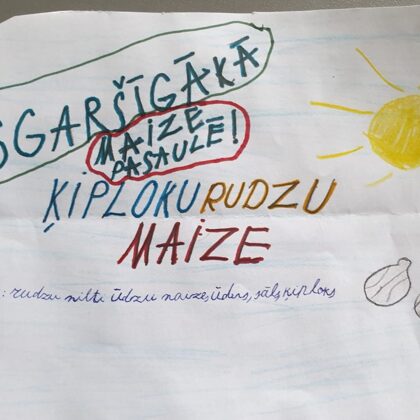 SGARŠĪGĀKĀ
MAIZE
PASAULĒ!
ĶIPLOKU RUDZU
MAIZE
: rudzu milti ūdzu maize, ūdens, sāls, ķiploks